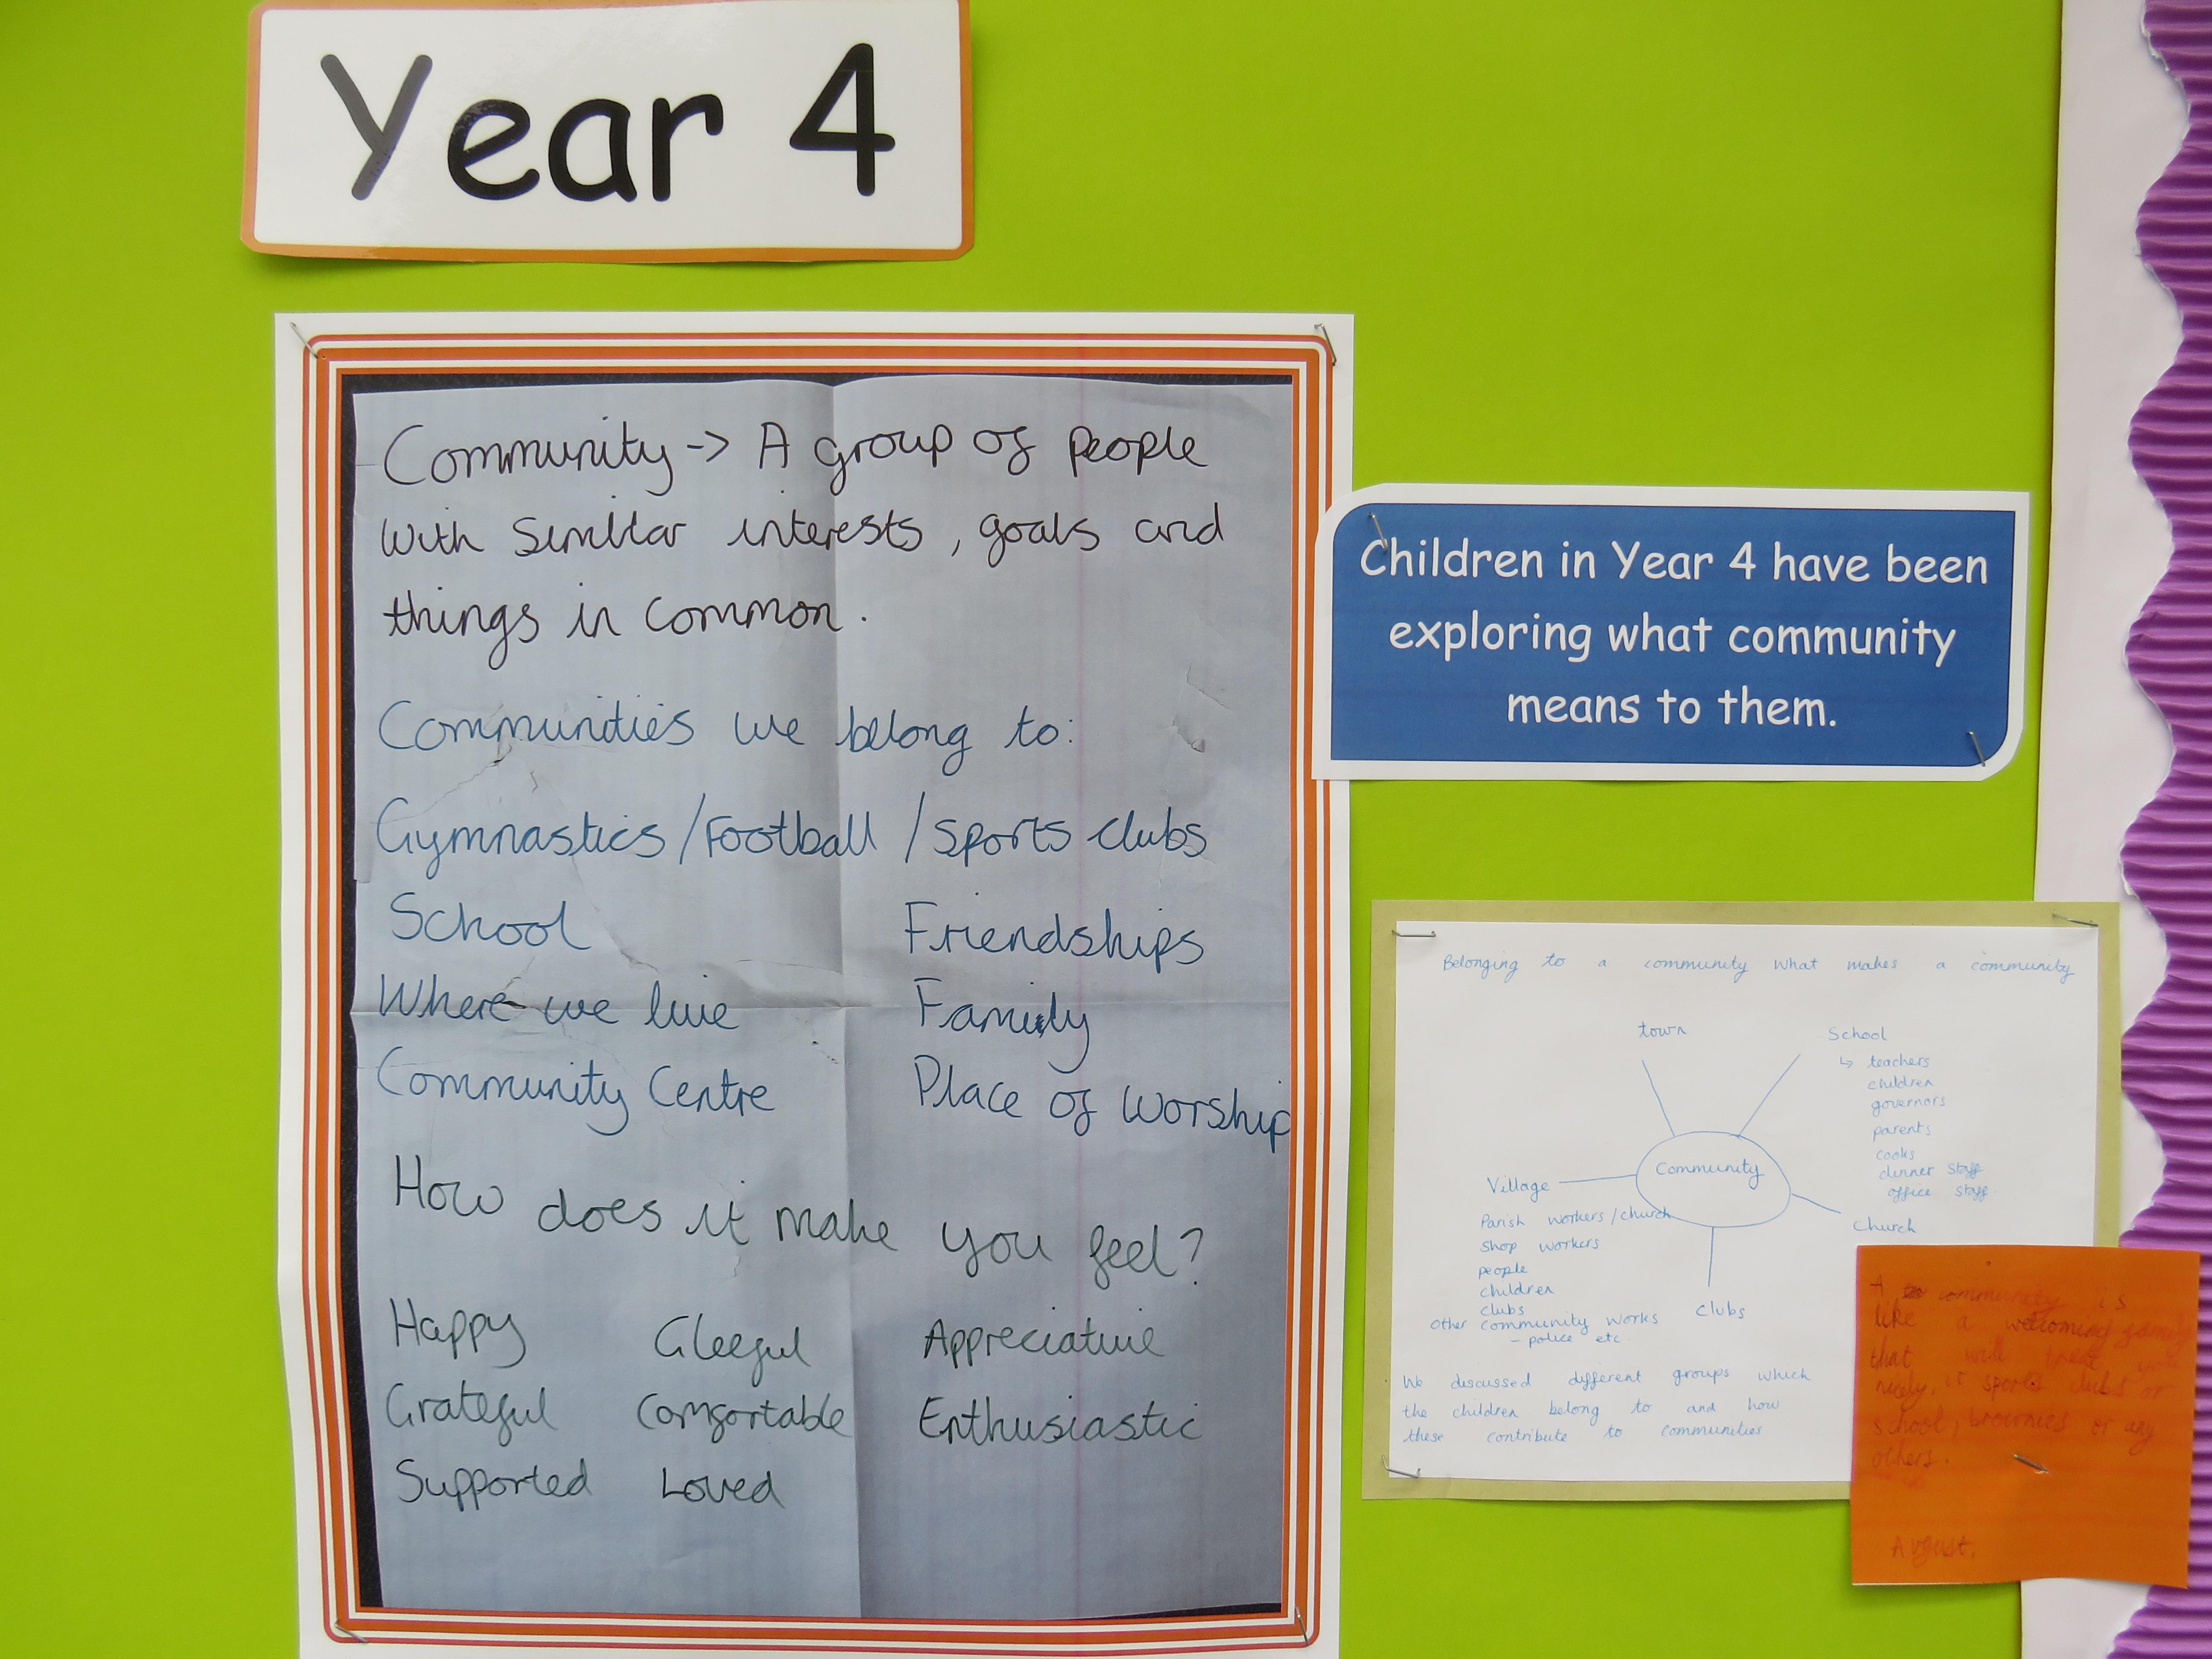 Year 4
Community -> A group of people
with similar interests, goals and
things in common.
Communities we belong to:
Gymnastics / Football / Sports clubs
School Friendships
Where we live Family
Community Centre Place of Worship
How does it make you feel?
Happy Gleeful Appreciative
Grateful Comfortable Enthusiastic
Supported Loved
Children in Year 4 have been
exploring what community
means to them.
Belonging to a community what makes a community
town
School
↳ teachers
children
governors
parents
cooks
dinner staff
office staff
Community
Village
Parish workers / church
Shop workers
people
children
clubs
Other community works
- police etc
Church
clubs
We discussed different groups which
the children belong to and how
these contribute to communities
A community is
like a welcoming family
that will treat you
nicely, it sports clubs or
school, brownies or any
others.
August.